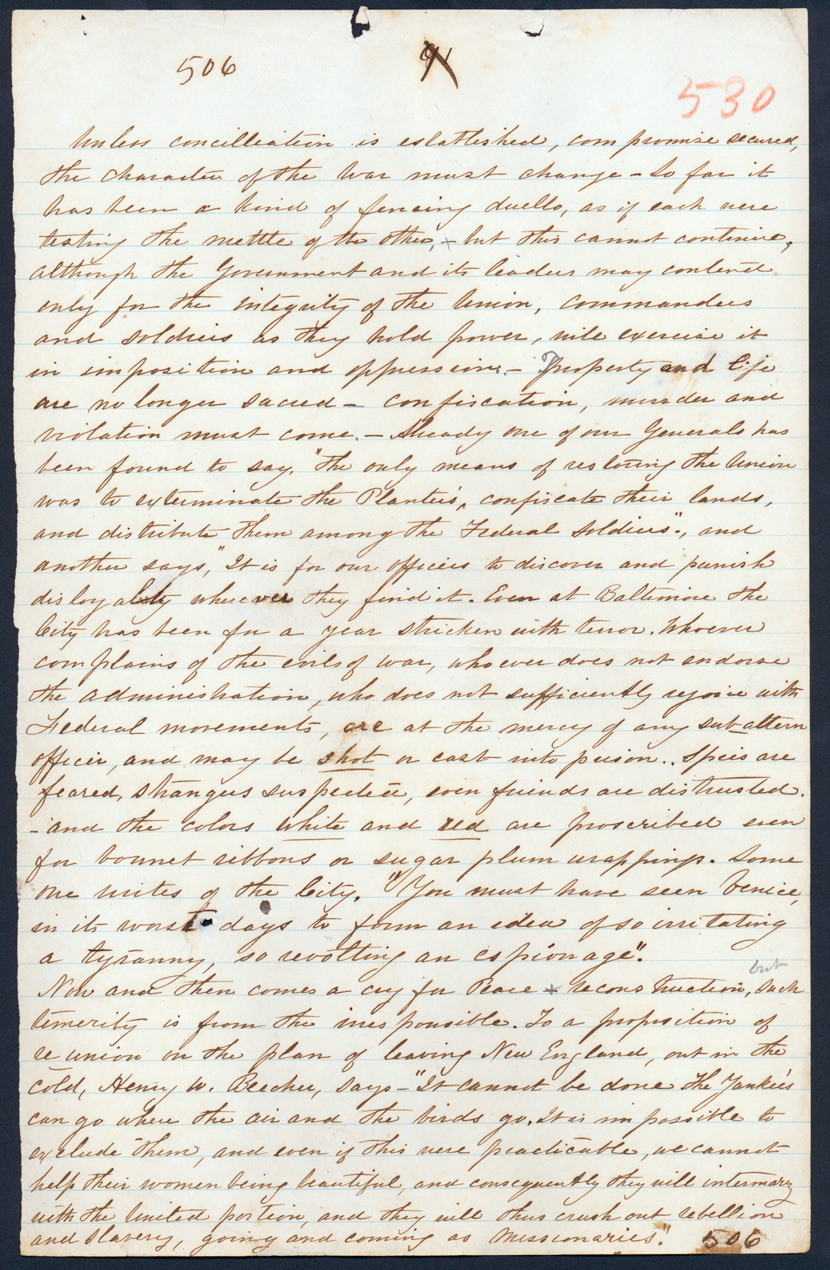 506 91 530
Unless concilliation is established, compromise secured,
the character of the War must change – So far it
has been a kind of fencing duello, as if each were
testing the mettle of the other, – but this cannot continue,
although the Government and its leaders may contend
only for the integrity of the Union, Commanders
and soldiers as they hold power, will exercise it
in imposition and oppression. – Property and Life
are no longer sacred – Confiscation, murder and
violation must come. – Already one of our Generals has
been found to say. "The only means of restoring the Union
was to exterminate the Planters, confiscate their lands,
and distribute them among the Federal soldiers", and
another says, "It is for our officers to discover and punish
disloyalty wherever they find it. Even at Baltimore the
City has been for a year stricken with terror. Whoever
complains of the evils of war, whoever does not endorse
the administration, who does not sufficiently rejoice with
Federal movements, are at the mercy of any subaltern
officer, and may be shot or cast into prison.. Spies are
feared, strangers suspected, even friends are distrusted.
- and the colors white and red are proscribed even
for bonnet ribbons or sugar plum wrappings. Some
one writes of the City. "You must have seen Venice,
in its worst days to form an idea of so irritating
a tyranny, so revolting an espionage".
but
Now and then comes a cry for Peace + reconstruction, such
temerity is from the irresponsible. To a proposition of
re union on the plan of leaving New England, out in the
cold, Henry W. Beecher, says – "It cannot be done the Yankees
can go where the air and the birds go. It is impossible to
exclude them, and even if this were practicable, we cannot
help their women being beautiful, and consequently they will intermarry
with the United portion, and they will thus crush out rebellion
and Slavery, going and coming as Missionaries." 506